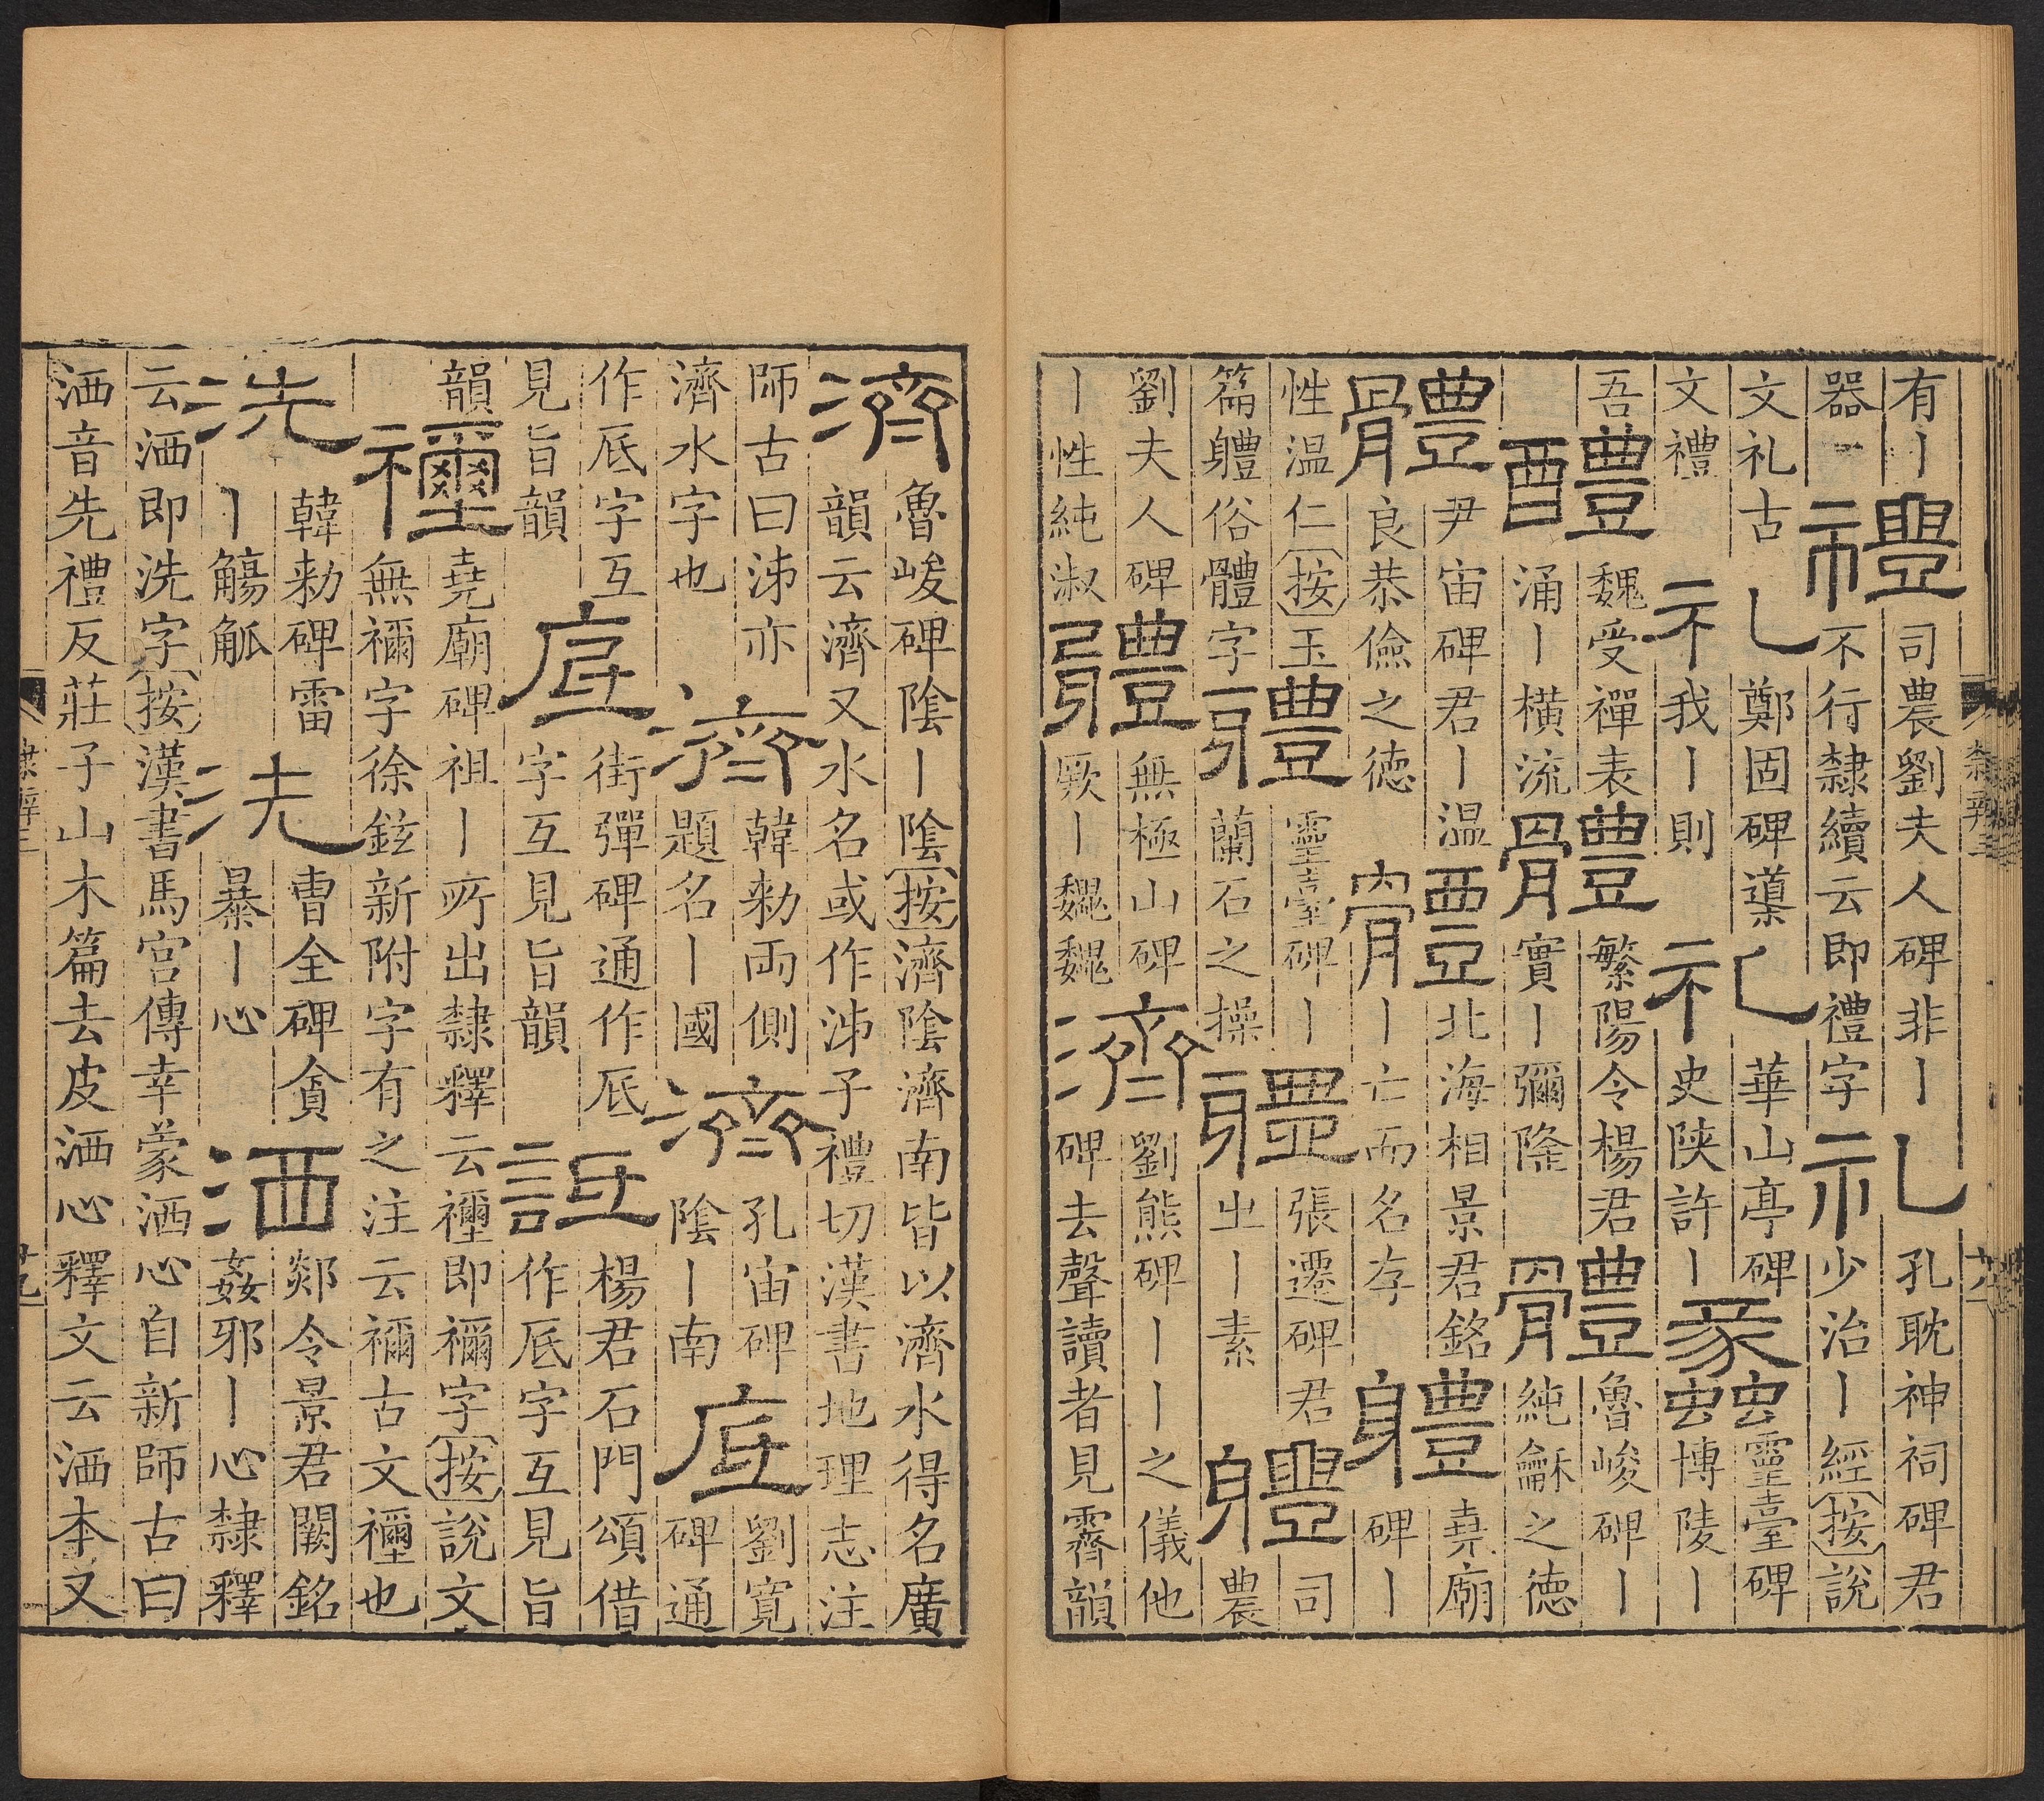 有丨
器
禮
司農劉夫人碑非丨
不行隸續云即禮字
礼
孔耽神祠碑君
少治丨經按說
文礼古
文禮
礼
鄭固碑導
我丨則
礼
華山亭碑
史陝許丨
蠡
靈臺碑
博陵丨
吾
醴
魏受禪表
涌丨橫流
體
繁陽令楊君
實丨彌隆
體
魯峻碑丨
純龢之德
體
尹宙碑君丨温
良恭儉之德
體
北海相景君銘
丨亡而名存
軆
堯廟
碑丨
性温仁按玉
篇軆俗體字
體
靈臺碑丨
蘭石之操
體
張遷碑君
出丨素
軆
司
農
劉夫人碑
丨性純淑
體
無極山碑
厥丨魏魏
濟
劉熊碑丨丨之儀他
碑去聲讀者見霽韻
隸辨三
濟
魯峻碑陰丨陰按濟陰濟南皆以濟水得名廣
韻云濟又水名或作泲子禮切漢書地理志注
師古曰泲亦
濟水字也
濟
韓勑兩側
題名丨國
濟
孔宙碑
陰丨南
底
劉寬
碑通
作厎字互
見旨韻
底
街彈碑通作厎
字互見旨韻
詆
楊君石門頌借
作厎字互見旨
韻
禰
堯廟碑祖丨所出隸釋云禰即禰字按說文
無禰字徐鉉新附字有之注云禰古文禰也
洗
韓勑碑雷
丨觴觚
洗
曹全碑貪
暴丨心
洒
郯令景君闕銘
姦邪丨心隸釋
云洒即洗字按漢書馬宮傳幸蒙洒心自新師古曰
洒音先禮反莊子山木篇去皮洒心釋文云洒本又
隸辨三
廿九